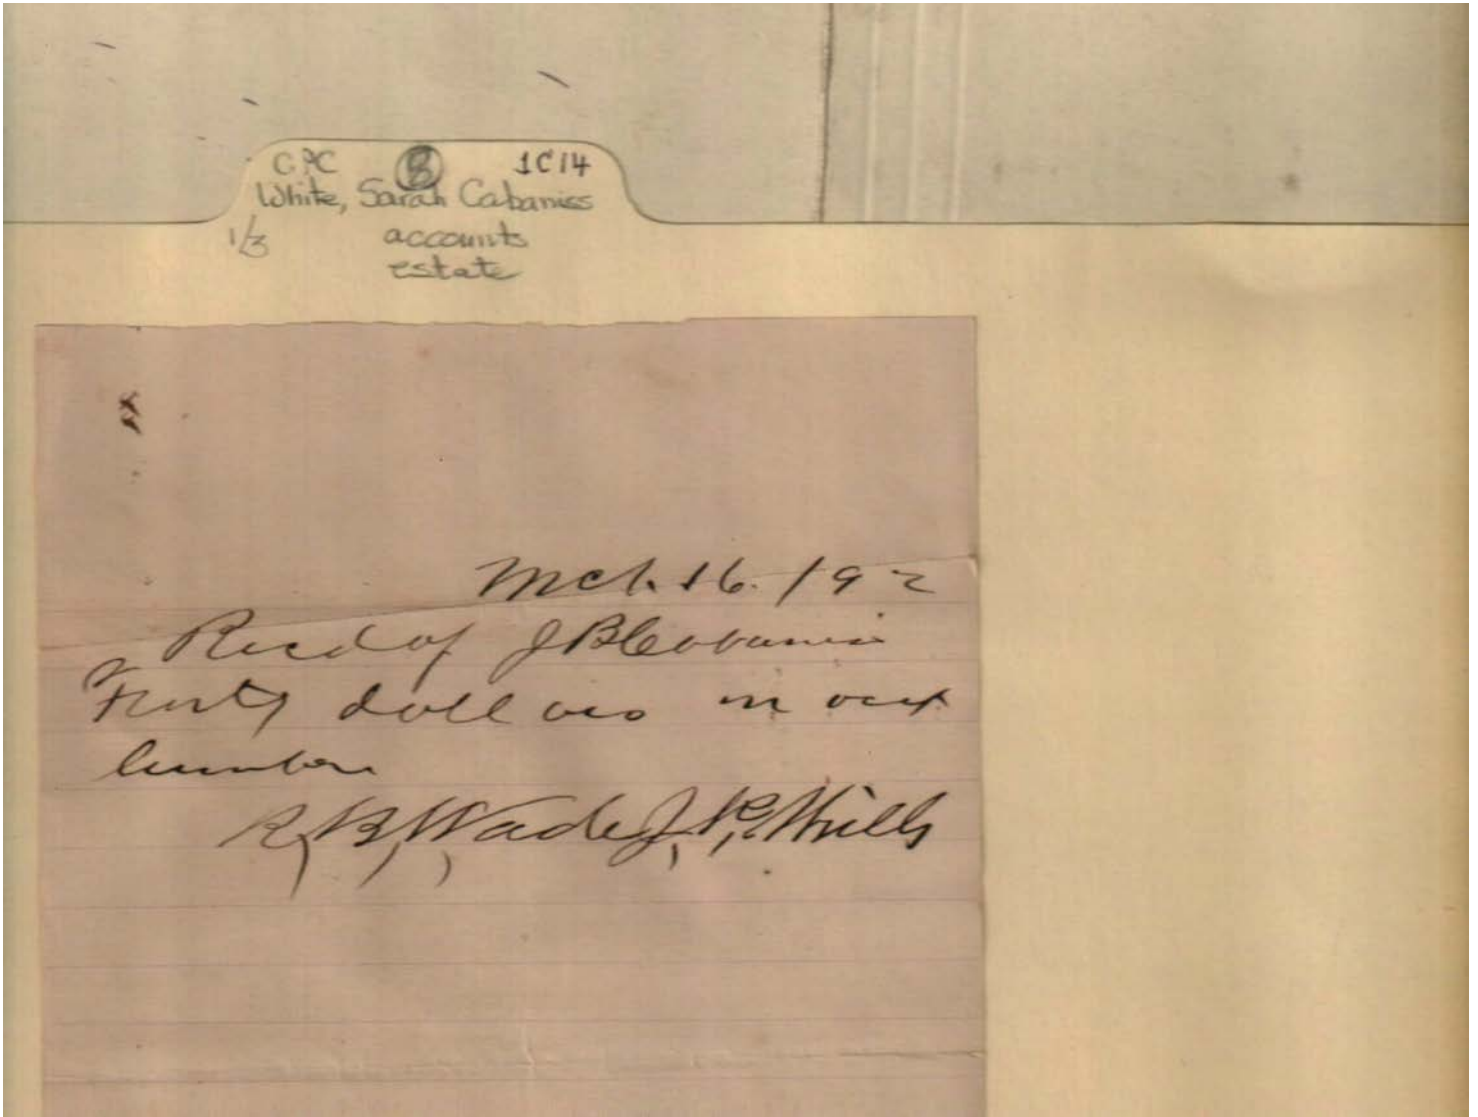 CPC B 1C14
White, Sarah Cabaniss
1/3 accounts
estate
Mch. 16. 192
Recd of J B Cabaniss
Forty dollars on acct
lumber
R, B, Wade J, R, Mills